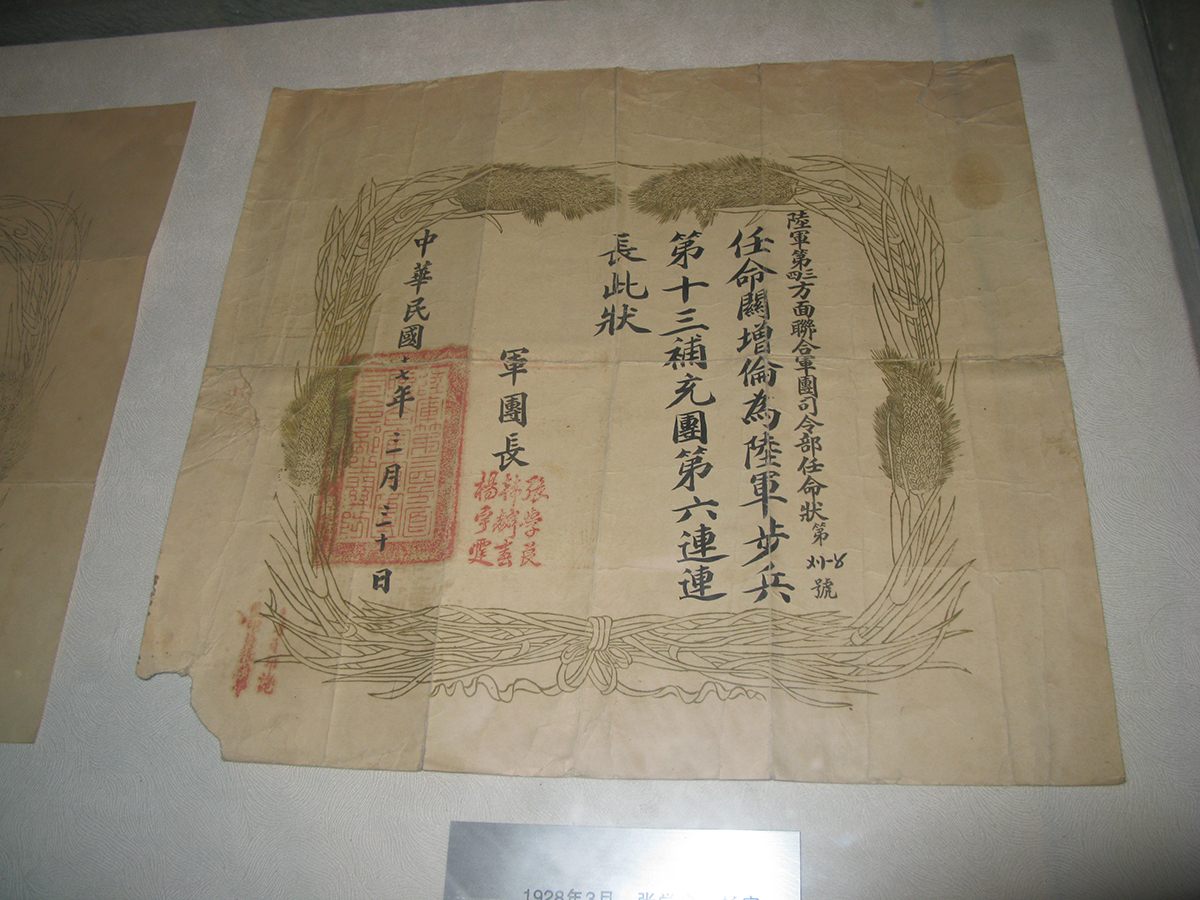 陸軍第三四方面聯合軍團司令部任命狀第 號
任命關增倫為陸軍步兵
第十三補充團第六連連
長此狀
軍團長
張學良
韓麟春
楊宇霆
中華民國十七年三月三十日
1928年3月